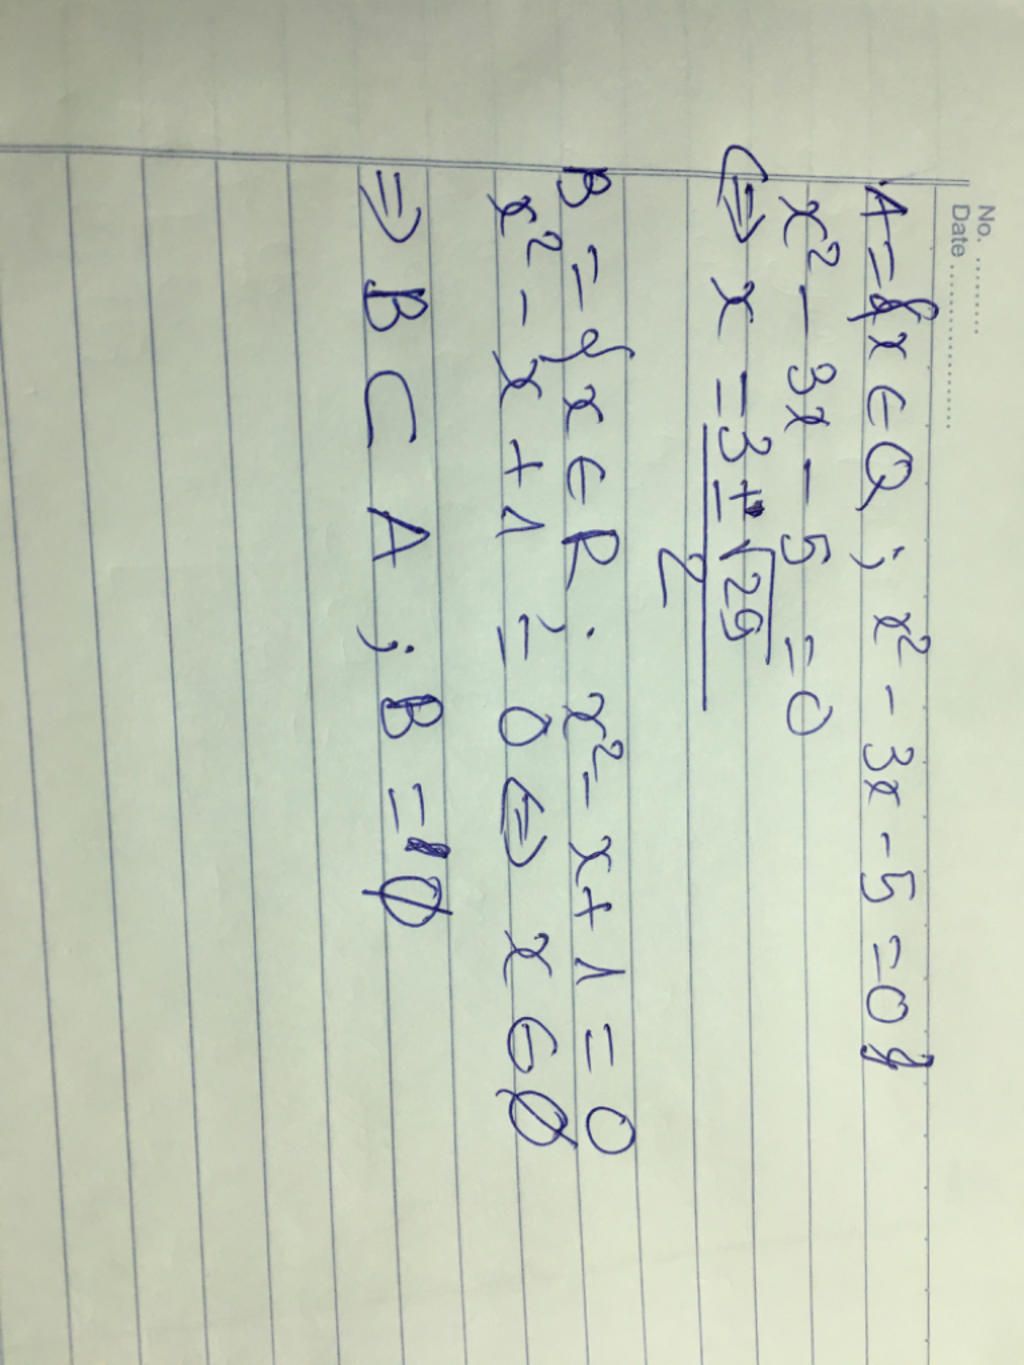 No. .........
Date .....................
A = {x ∈ Q ; x² - 3x - 5 = 0}
x² - 3x - 5 = 0
⇔ x = 3 ± √29
2
B = {x ∈ R ; x² - x + 1 = 0
x² - x + 1 = 0 ⇔ x ∈ ∅
⇒ B ⊂ A ; B = ∅